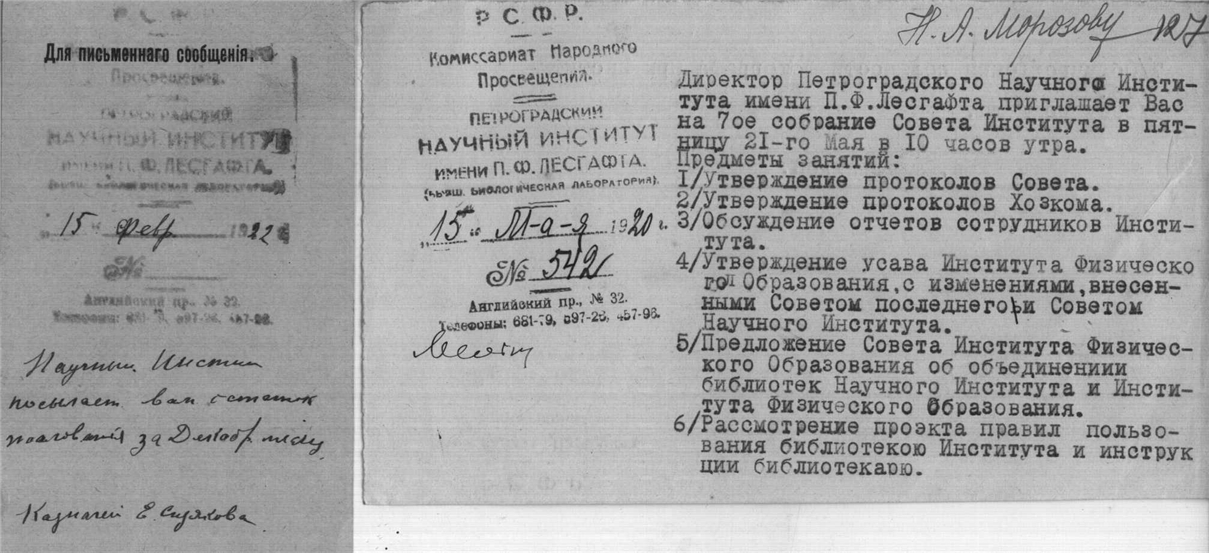 Р. С. Ф. Р.
Для письменнаго сообщенія.
Просвещения.
ПЕТРОГРАДСКИЙ
НАУЧНЫЙ ИНСТИТУТ
ИМЕНИ П. Ф. ЛЕСГАФТА.
(БЫВШ. БИОЛОГИЧЕСКАЯ ЛАБОРАТОРИЯ).
„15" Февр 1922
№
Английский пр., № 32.
Телефоны: 681-79, 897-28, 457-98.
Научный Инстит
посылает вам остаток
жалования за Декабр месяц
Казначей Е.
Р. С. Ф. Р.
Комиссариат Народного
Просвещения.
ПЕТРОГРАДСКИЙ
НАУЧНЫЙ ИНСТИТУТ
ИМЕНИ П. Ф. ЛЕСГАФТА.
(БЫВШ. БИОЛОГИЧЕСКАЯ ЛАБОРАТОРИЯ).
„15" М-а-я 1920 г.
№ 542
Английский пр., № 32.
Телефоны: 681-79, 897-28, 457-98.
Н. А. Морозову 127
Директор Петроградского Научного Инсти-
тута имени П.Ф.Лесгафта приглашает Вас
на 7ое собрание Совета Института в пят-
ницу 21-го Мая в 10 часов утра.
Предметы занятий:
1/Утверждение протоколов Совета.
2/Утверждение протоколов Хозкома.
3/Обсуждение отчетов сотрудников Инсти-
тута.
4/Утверждение усава Института Физическо
го Образования,с изменениями,внесен-
ными Советом последнего и Советом
Научного Института.
5/Предложение Совета Института Физичес-
кого Образования об объединениии
библиотек Научного Института и Инсти-
тута Физического Образования.
6/Рассмотрение проэкта правил пользо-
вания библиотекою Института и инструк
ции библиотекарю.